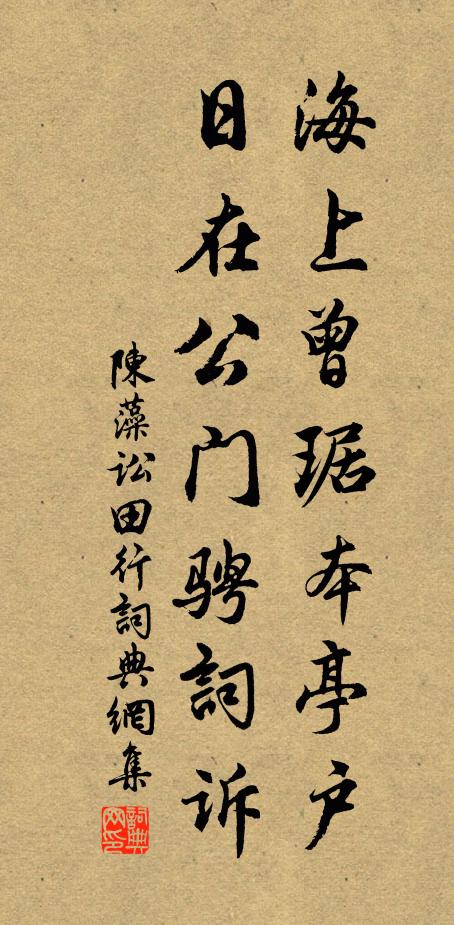 海上曾琚本亭户
日在公门骋詞诉
陳藻讼田行詞典網集
詞典网印